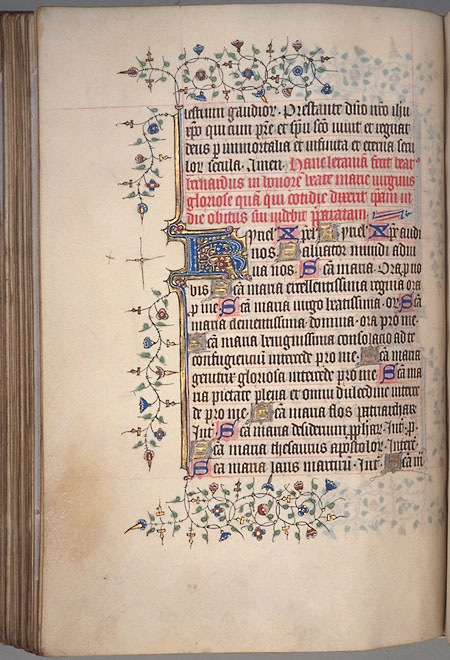 lestium gaudior. Prestante dño nrõ ihu
xpõ qui cum pr̃e et sp̃u scõ uiuit et regnat
deus p immortalia et infinita et eterna secu
lor secula. Amen. Hanc letaniã fecit bear
bernardus in honorẽ beate marie uirginis
gloriose quã qui cotidie dixerit ipam in
die obitus sui uidebit paratam
Kyriel xpel Kyriel xpe audi
nos. Saluator mundi adiu
ua nos. Sc̃a maria. Ora p no
bis Sc̃a maria excellentissima regina ora
p me. Sc̃a maria uirgo beatissima. or Sc̃a
maria clementissima domina. ora pro me.
Sc̃a maria benignissima consolatio ad te
confugiencium intercede pro me. Sc̃a maria
genitrix gloriosa intercede pro me Sc̃a ma
ria pietate plena et omni dulcedine interce
de pro me. Sc̃a maria flos patriarchar
Int. Sc̃a maria desiderium pphar. Int. p.
Sc̃a maria thesaurus apostolor. Interc.
Sc̃a maria laus martirũ. Int. Sc̃a m̃